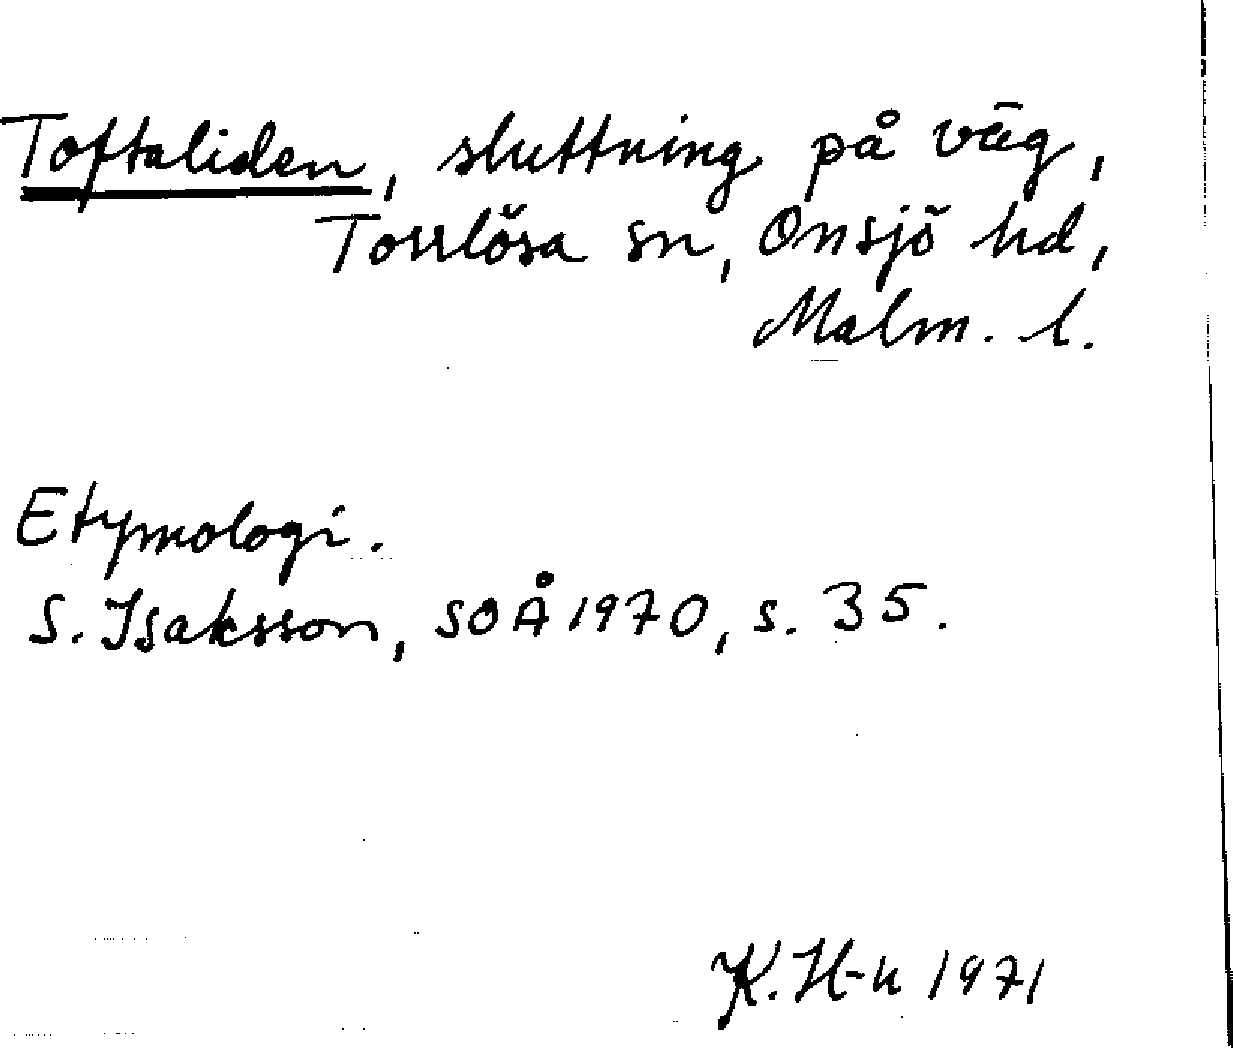 Toftaliden, sluttning på väg,
Torrlösa sn, Onsjö hd,
Malm. l.
Etymologi.
S. Isaksson, SOÅ 1970, s. 35.
K. H-n 1971